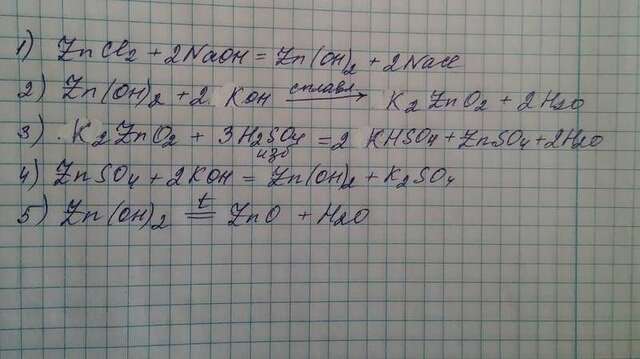 1) ZnCl2 + 2NaOH = Zn(OH)2 + 2NaCl
2) Zn(OH)2 + 2 KOH сплавл. → K2ZnO2 + 2H2O
3) K2ZnO2 + 3H2SO4 изб = 2 KHSO4 + ZnSO4 + 2H2O
4) ZnSO4 + 2KOH = Zn(OH)2 + K2SO4
5) Zn(OH)2 t = ZnO + H2O